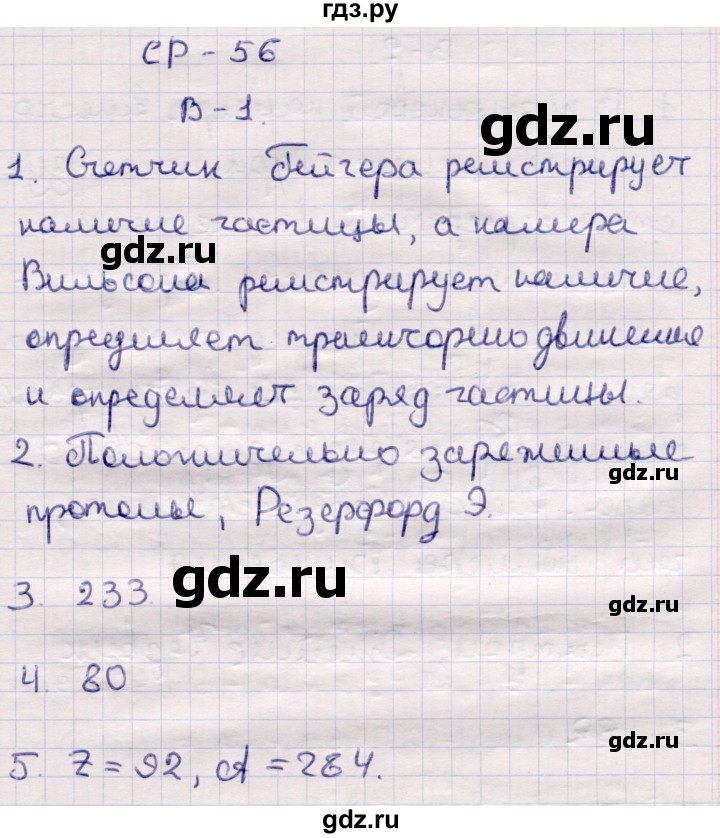 гдз.ру
СР - 56
В - 1.
gdz.ru
1. Счетчик Гейгера регистрирует
наличие частицы, а камера
gdz.ru
Вильсона регистрирует наличие,
определяет траекторию движения
gdz.ru
и определяет заряд частицы.
2. Положительно заряженные
gdz.ru
протоны, Резерфорд Э.
3. 233.
gdz.ru
gdz.ru
4. 80
5. Z = 92, A = 284.
gdz.ru
gdz.ru